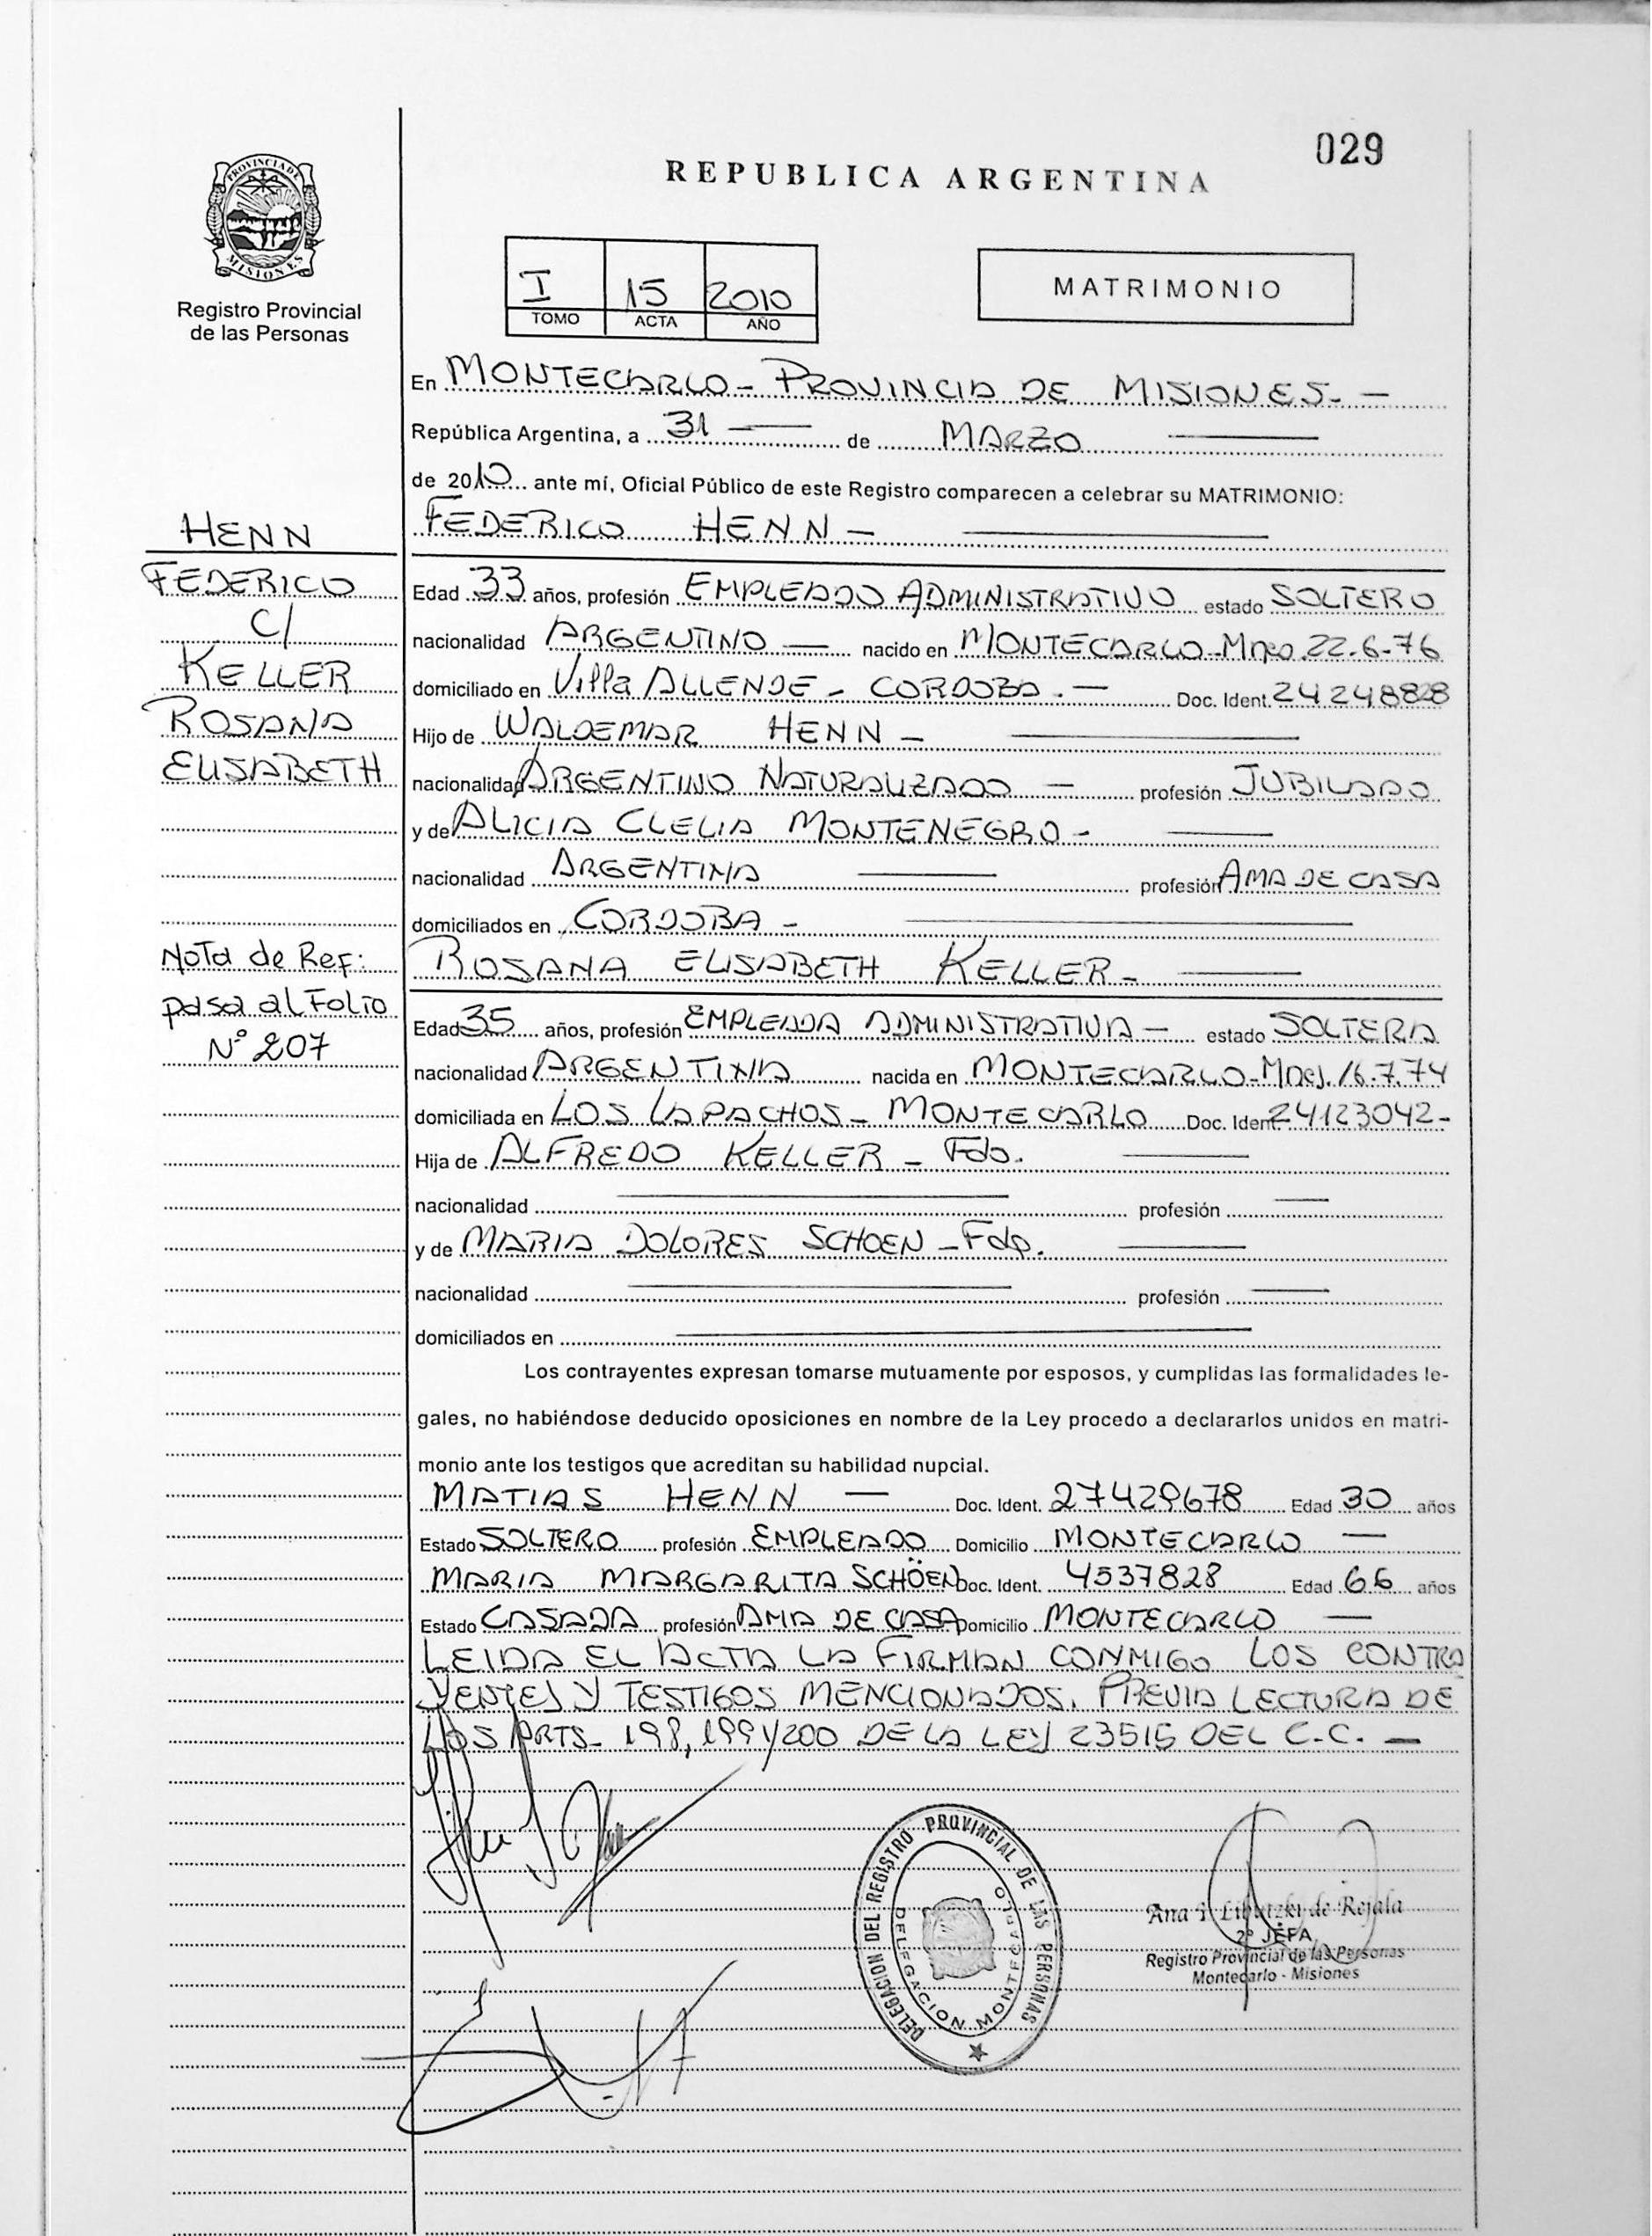 029
REPUBLICA ARGENTINA
PROVINCIA DE
MISIONES
Registro Provincial
de las Personas
I 15 2010
TOMO ACTA AÑO
MATRIMONIO
En MONTECARLO - PROVINCIA DE MISIONES. -
República Argentina, a 31 — de MARZO —
de 2010 ante mí, Oficial Público de este Registro comparecen a celebrar su MATRIMONIO:
FEDERICO HENN - —
HENN
FEDERICO
C/
KELLER
ROSANA
ELISABETH
Edad 33 años, profesión EMPLEADO ADMINISTRATIVO estado SOLTERO
nacionalidad ARGENTINO — nacido en MONTECARLO - 22-6-76
domiciliado en Villa ALLENDE - CORDOBA. — Doc. Ident. 24248828
Hijo de WALDEMAR HENN - —
nacionalidad ARGENTINO NATURALIZADO — profesión JUBILADO
y de ALICIA CLELIA MONTENEGRO - —
nacionalidad ARGENTINA — profesión AMA DE CASA
domiciliados en CORDOBA - —
Nota de Ref:
pasa al Folio
N° 207
ROSANA ELISABETH KELLER - —
Edad 35 años, profesión EMPLEADA ADMINISTRATIVA — estado SOLTERA
nacionalidad ARGENTINA nacida en MONTECARLO - 16.7.74
domiciliada en LOS LAPACHOS - MONTECARLO Doc. Ident. 24123042-
Hija de ALFREDO KELLER - Fdo. —
nacionalidad — profesión —
y de MARIA DOLORES SCHOEN - Fdo. —
nacionalidad — profesión —
domiciliados en —
Los contrayentes expresan tomarse mutuamente por esposos, y cumplidas las formalidades le-
gales, no habiéndose deducido oposiciones en nombre de la Ley procedo a declararlos unidos en matri-
monio ante los testigos que acreditan su habilidad nupcial.
MATIAS HENN — Doc. Ident. 27429678 Edad 30 años
Estado SOLTERO profesión EMPLEADO Domicilio MONTECARLO —
MARIA MARGARITA SCHÖEN Doc. Ident. 4537828 Edad 66 años
Estado CASADA profesión AMA DE CASA Domicilio MONTECARLO —
LEIDA EL ACTA LA FIRMAN CONMIGO LOS CONTRA
YENTES Y TESTIGOS MENCIONADOS. PREVIA LECTURA DE
LOS ARTS- 198, 199 Y 200 DE LA LEY 23515 DEL C.C. —
DELEGACION DEL REGISTRO PROVINCIAL DE LAS PERSONAS
DELEGACION MONTECARLO
Ana de Rejala
2° JEFA
Registro Provincial de las Personas
Montecarlo - Misiones